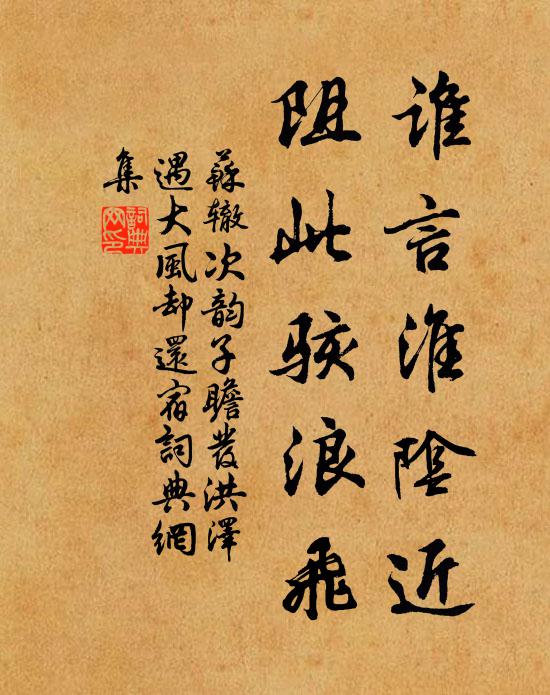 谁言淮陰近
阻此駭浪飛
蘇辙次韵子瞻發洪澤
遇大風却還宿詞典網
集
詞典
网印